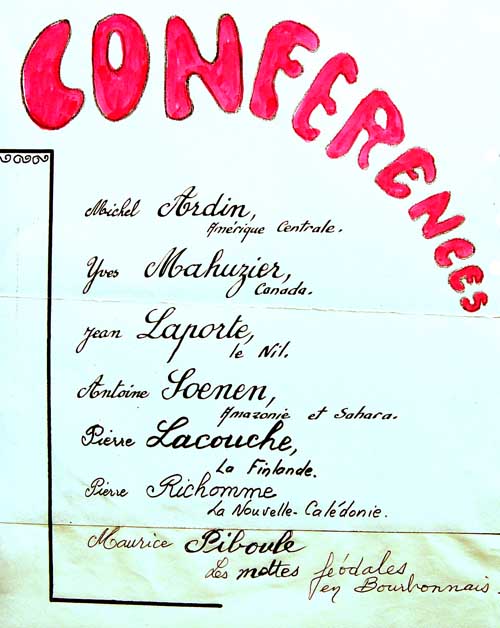 CONFERENCES
Michel Ardin,
Amérique Centrale.
Yves Mahuzier,
Canada.
Jean Laporte,
le Nil.
Antoine Soenen,
Amazonie et Sahara.
Pierre Lacouche,
La Finlande.
Pierre Richomme
La Nouvelle-Calédonie.
Maurice Piboule
Les mottes féodales
en Bourbonnais.